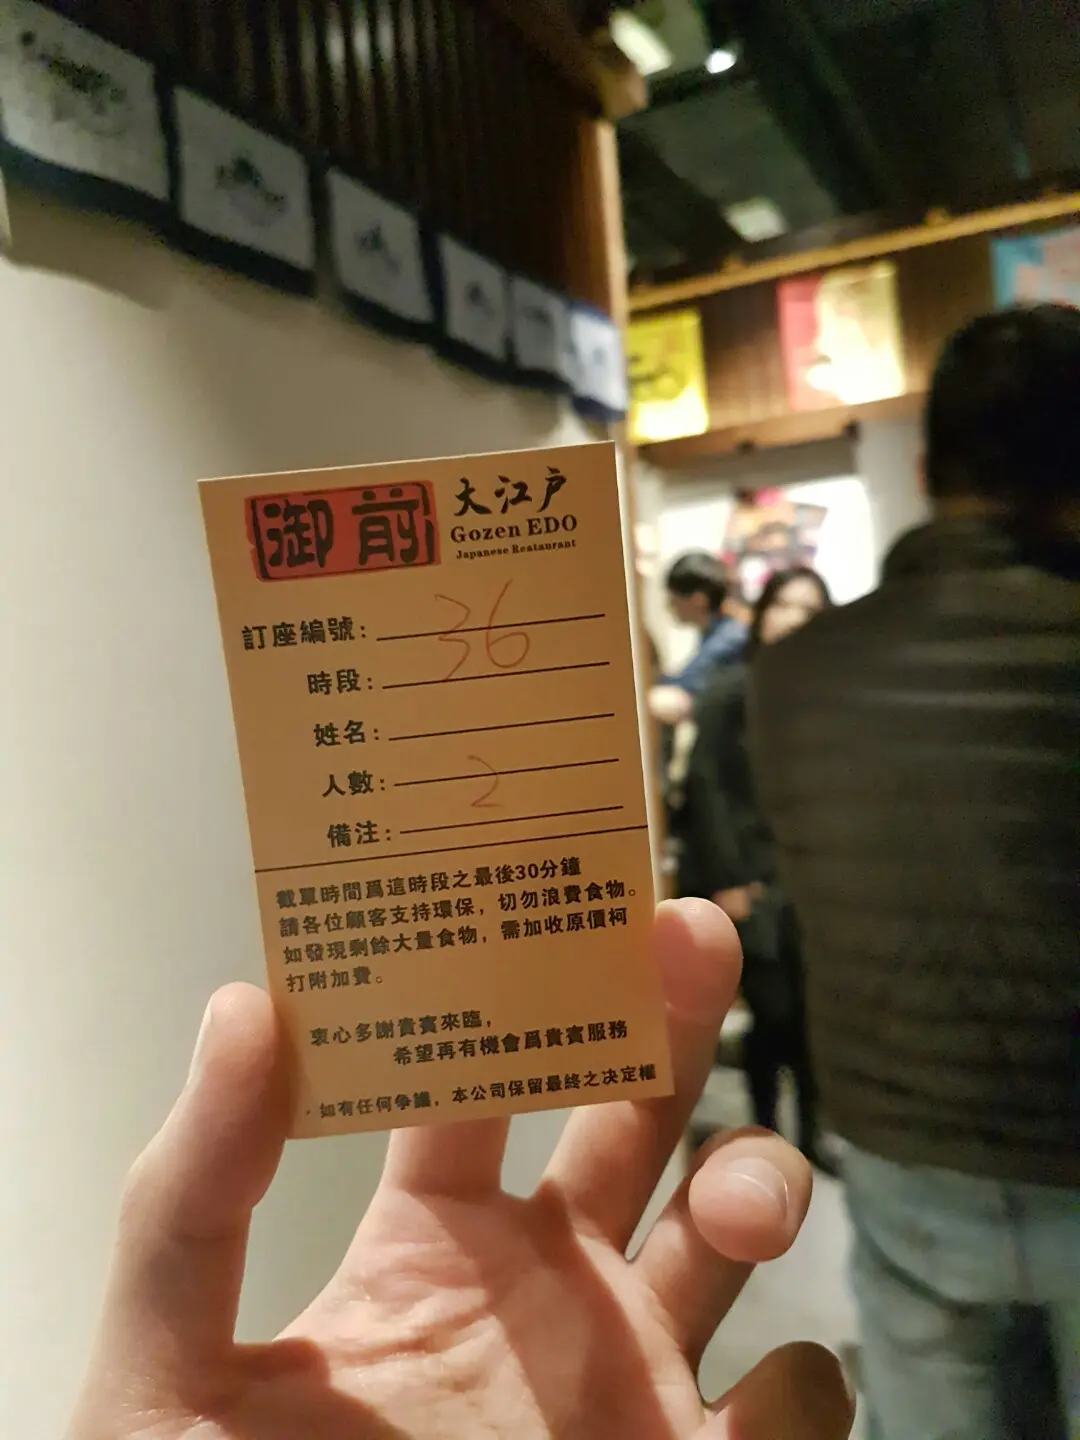 御前
大江戸
Gozen EDO
Japanese Restaurant
訂座編號: 36
時段:
姓名:
人數: 2
備注:
截單時間爲這時段之最後30分鐘
請各位顧客支持環保，切勿浪費食物。
如發現剩餘大量食物，需加收原價柯
打附加費。
衷心多謝貴賓來臨，
希望再有機會爲貴賓服務
·如有任何争議，本公司保留最終之决定權